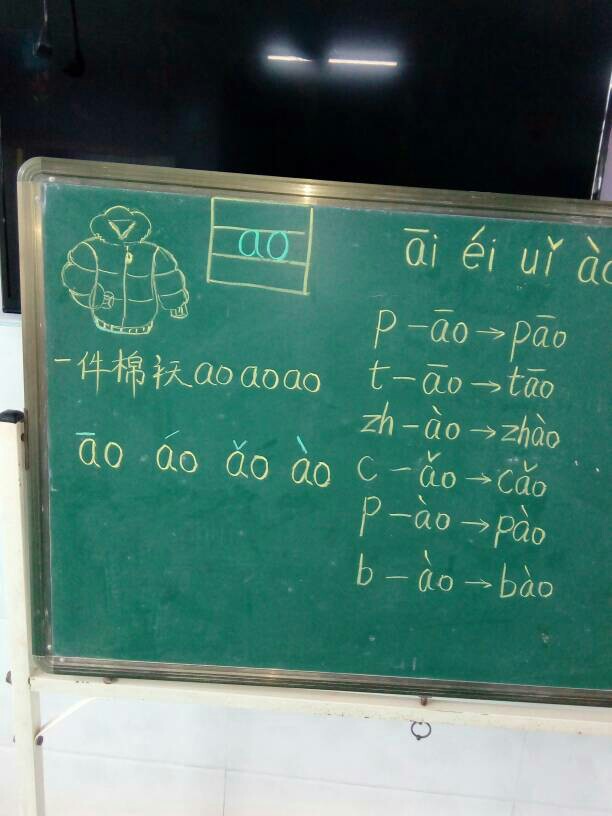 ao
āi éi uǐ ào
一件棉袄ao ao ao
āo áo ǎo ào
p－āo→pāo
t－āo→tāo
zh－ào→zhào
c－ǎo→cǎo
p－ào→pào
b－ào→bào